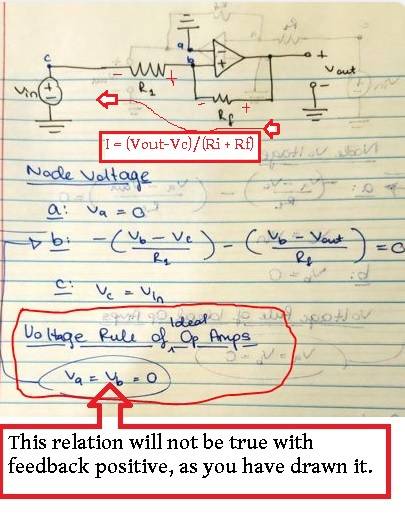 a
c
b
Vin
R1
Vout
Rf
I = (Vout-Vc)/(Ri + Rf)
Node Voltage
a: Va = 0
b: -(Vb - Vc / R1) - (Vb - Vout / Rf) = 0
c: Vc = Vin
Voltage Rule of Ideal Op Amps
Va = Vb = 0
This relation will not be true with
feedback positive, as you have drawn it.